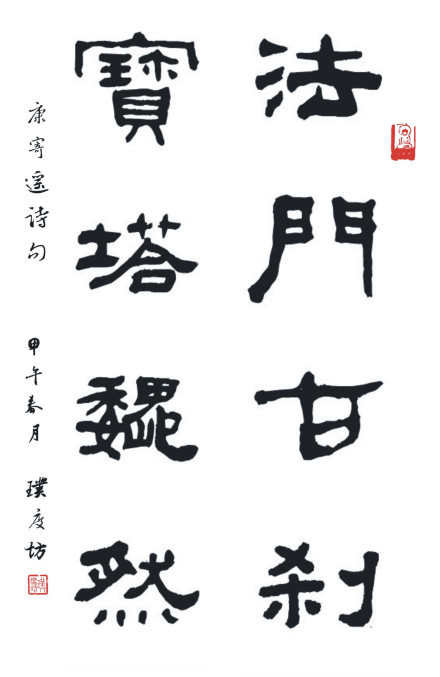 法門古刹
寶塔魏然
康寄遥詩句
甲午春月 璞度坊